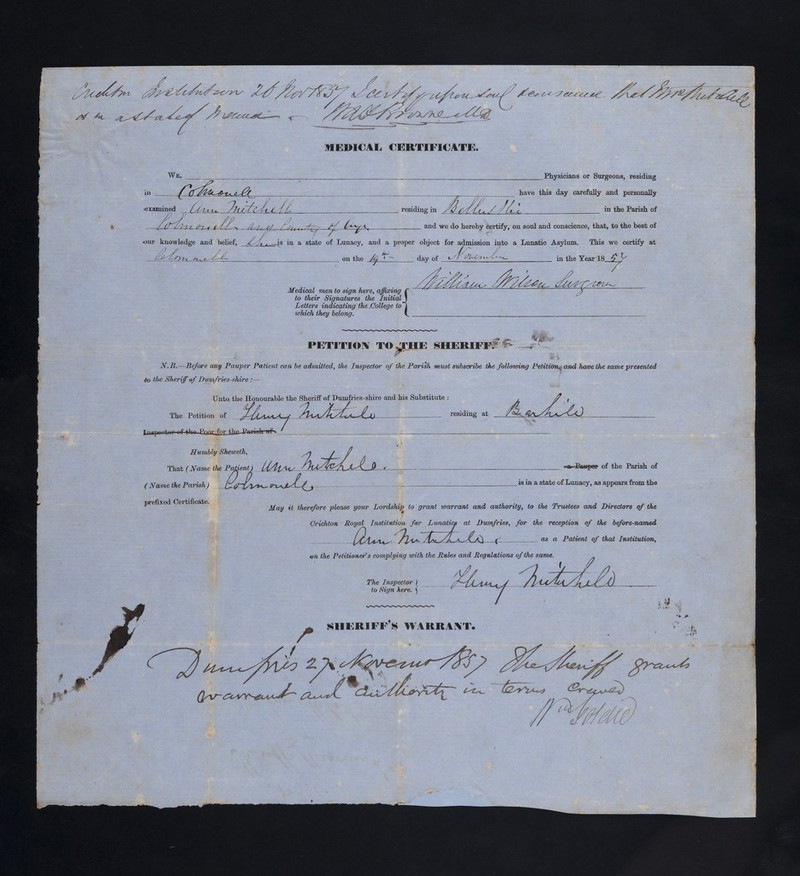 Institution 26 Nov 1857 I certify upon soul & conscience that Mrs Mitchell
is in a state of
MEDICAL CERTIFICATE.
WE, Physicians or Surgeons, residing
in Colmonell have this day carefully and personally
examined Ann Mitchell residing in in the Parish of
Colmonell and County of Ayr and we do hereby certify, on soul and conscience, that, to the best of
our knowledge and belief, She is in a state of Lunacy, and a proper object for admission into a Lunatic Asylum. This we certify at
Colmonell on the 19th day of November in the Year 1857
Medical men to sign here, affixing
to their Signatures the Initial
Letters indicating the College to
which they belong.
William Wilson Surgeon
PETITION TO THE SHERIFF.
N.B.—Before any Pauper Patient can be admitted, the Inspector of the Parish must subscribe the following Petition, and have the same presented
to the Sheriff of Dumfries-shire:—
Unto the Honourable the Sheriff of Dumfries-shire and his Substitute:
The Petition of Henry Mitchell residing at
Inspector of the Poor for the Parish of
Humbly Sheweth,
That (Name the Patient) Ann Mitchell. a Pauper of the Parish of
(Name the Parish) Colmonell is in a state of Lunacy, as appears from the
prefixed Certificate.
May it therefore please your Lordship to grant warrant and authority, to the Trustees and Directors of the
Crichton Royal Institution for Lunatics at Dumfries, for the reception of the before-named
Ann Mitchell as a Patient of that Institution,
on the Petitioner's complying with the Rules and Regulations of the same.
The Inspector
to Sign here.
Henry Mitchell
SHERIFF'S WARRANT.
Dumfries 27 November 1857 The Sheriff grants
warrant and authority in terms craved